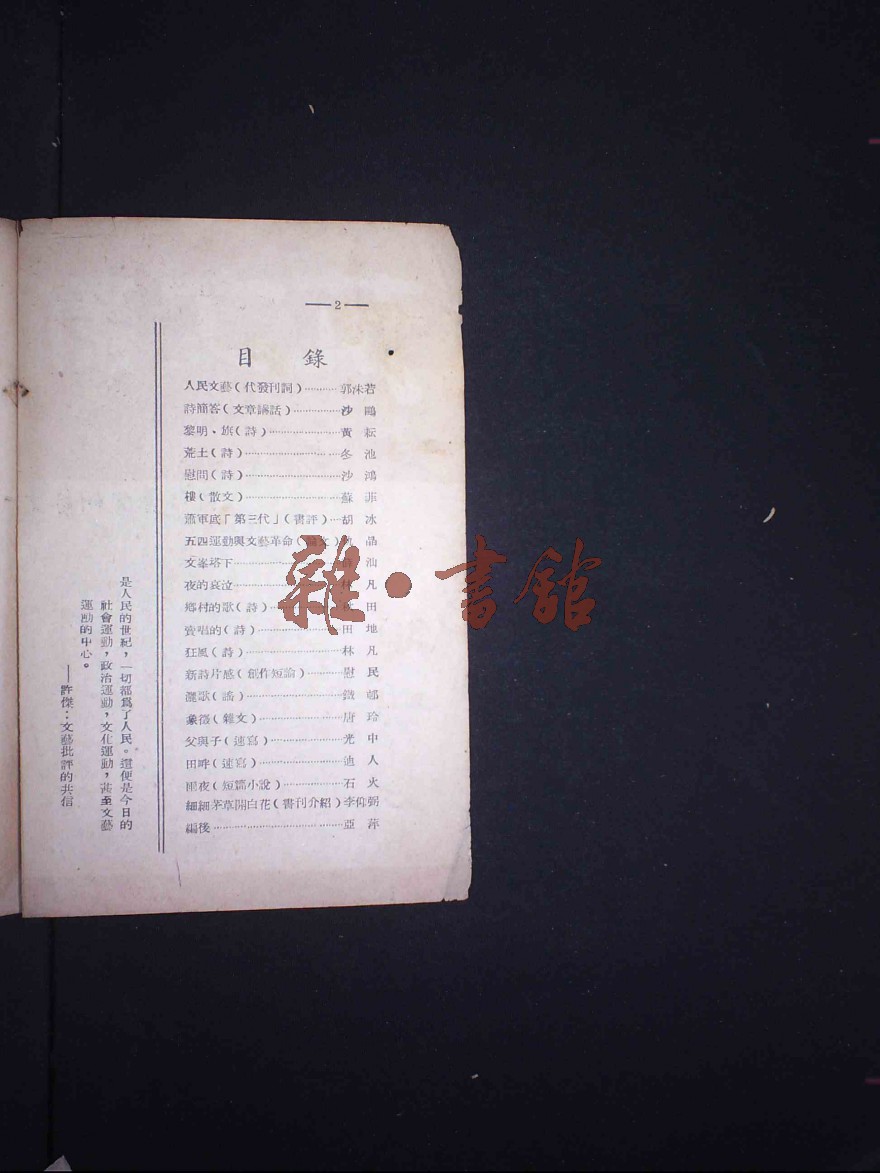 —2—
目錄
人民文藝(代發刊詞)………郭沫若
詩簡答(文章講話)………沙鷗
黎明、旗(詩)………黃耘
荒土(詩)………冬池
慰問(詩)………沙鴻
樓(散文)………蘇菲
蕭軍底「第三代」(書評)…胡冰
五四運動與文藝革命(論文)
文峯塔下………汕
夜的哀泣………林凡
鄉村的歌(詩)………田
賣唱的(詩)………田地
狂風(詩)………林凡
新詩片感(創作短論)………慰民
灑歌(謠)………鐵郎
象徵(雜文)………唐玲
父與子(速寫)………光中
田呼(速寫)………迪人
夜(短篇小說)………石火
細細茅草開白花(書刊介紹)李仰弼
編後………亞萍
是人民的世紀,一切都爲了人民。這便是今日的
社會運動,政治運動,文化運動,甚至文藝
運動的中心。
——許傑:文藝批評的共信
雜·書館